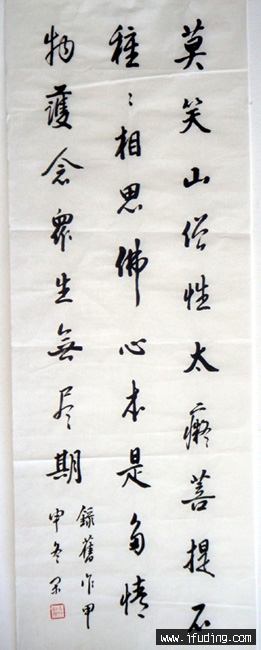 莫笑山僧性太癡菩提不
種〻相思佛心本是多情
物護念眾生無尽期
錄舊作甲
申冬
www.ifuding.com